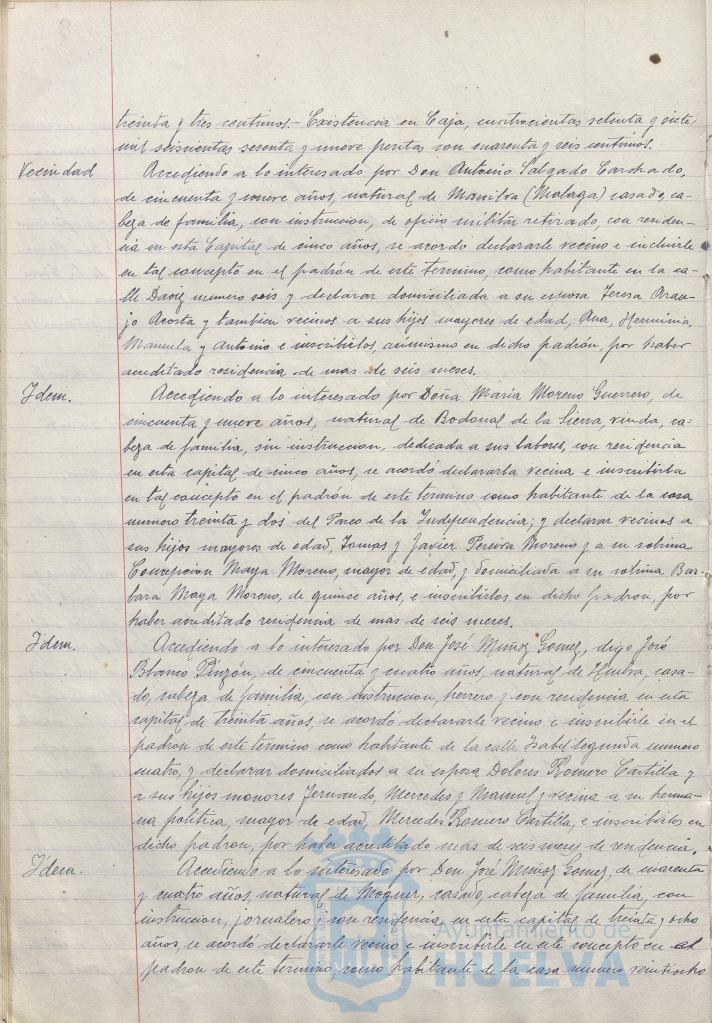 treinta y tres centimos.- Existencia en Caja, cuatrocientas setenta y siete
mil seiscientas sesenta y nueve pesetas con cuarenta y seis centimos.
Vecindad
Accediendo a lo interesado por Don Antonio Salgado Carchado,
de cincuenta y nueve años, natural de Manilva (Malaga) casado, ca-
beza de familia, con instruccion, de oficio militar retirado, con residen-
cia en esta Capital de cinco años, se acordó declararle vecino e incluirle
en tal concepto en el padrón de este termino, como habitante en la ca-
lle Daoiz numero seis y declarar domiciliada a su esposa Teresa Arau-
jo Acosta y tambien vecinos a sus hijos mayores de edad, Ana, Herminia,
Manuela y Antonio e inscribirlos, asimismo en dicho padrón, por haber
acreditado residencia de mas de seis meses.
Idem.
Accediendo a lo interesado por Doña María Moreno Guerrero, de
cincuenta y nueve años, natural de Bodonal de la Sierra, viuda, ca-
beza de familia, sin instruccion, dedicada a sus labores, con residencia
en esta capital de cinco años, se acordó declararla vecina e inscribirla
en tal concepto en el padrón de este termino como habitante de la casa
numero treinta y dos del Paseo de la Independencia; y declarar vecinos a
sus hijos mayores de edad, Tomas y Javier Pereira Moreno y a su sobrina
Concepcion Maya Moreno, mayor de edad, y domiciliada a su sobrina Bar-
bara Maya Moreno, de quince años, e inscribirlos en dicho padron, por
haber acreditado residencia de mas de seis meses.
Idem.
Accediendo a lo interesado por Don José Muñoz Gomez, digo José
Blanco Pinzón, de cincuenta y cuatro años, natural de Huelva, casa-
do, cabeza de familia, con instruccion, herrero y con residencia en esta
capital de treinta años, se acordó declararle vecino e inscribirle en el
padron de este termino como habitante de la calle Isabel segunda numero
cuatro, y declarar domiciliados a su esposa Dolores Romero Castilla y
a sus hijos menores Fernando, Mercedes y Manuel y vecina a su herma-
na politica, mayor de edad, Mercedes Romero Castilla, e inscribirlos en
dicho padron, por haber acreditado mas de seis meses de residencia.
Idem.
Accediendo a lo interesado por Don José Muñoz Gomez, de cuarenta
y cuatro años, natural de Moguer, casado, cabeza de familia, con
instruccion, jornalero y con residencia, en esta capital de treinta y ocho
años, se acordó declararle vecino e inscribirle en este concepto en el
padron de este termino, como habitante de la casa numero veintiocho
Ayuntamiento de
HUELVA